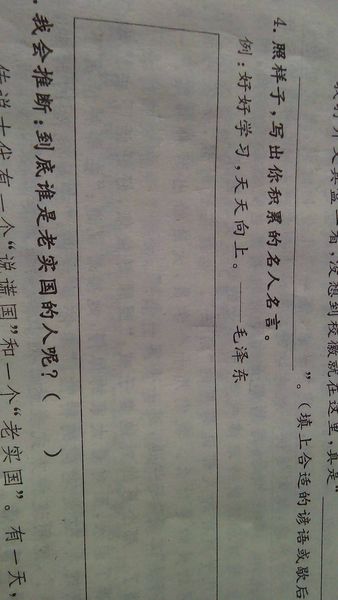 看，没想到校徽就在这里，真是“
”。（填上合适的谚语或歇后
4. 照样子，写出你积累的名人名言。
例：好好学习，天天向上。——毛泽东
. 我会推断：到底谁是老实国的人呢？（ ）
传说古代有一个“说谎国”和一个“老实国”。有一天，